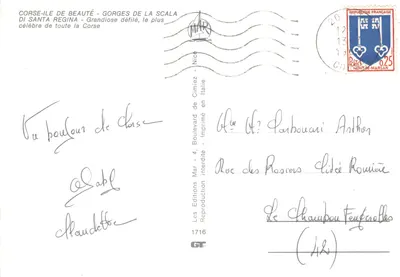 CORSE-ILE DE BEAUTÉ - GORGES DE LA SCALA
DI SANTA REGINA - Grandiose défilé, le plus
célèbre de toute la Corse
Un bonjour de Corse
Claudette
Les Editions Mar - 4, Boulevard de Cimiez - Nice
Reproduction interdite - Imprimé en Italie
1716
GT
0,25
Arthur
Rue des Rosiers Cité Romière
Le Chambon Feugerolles
(42)